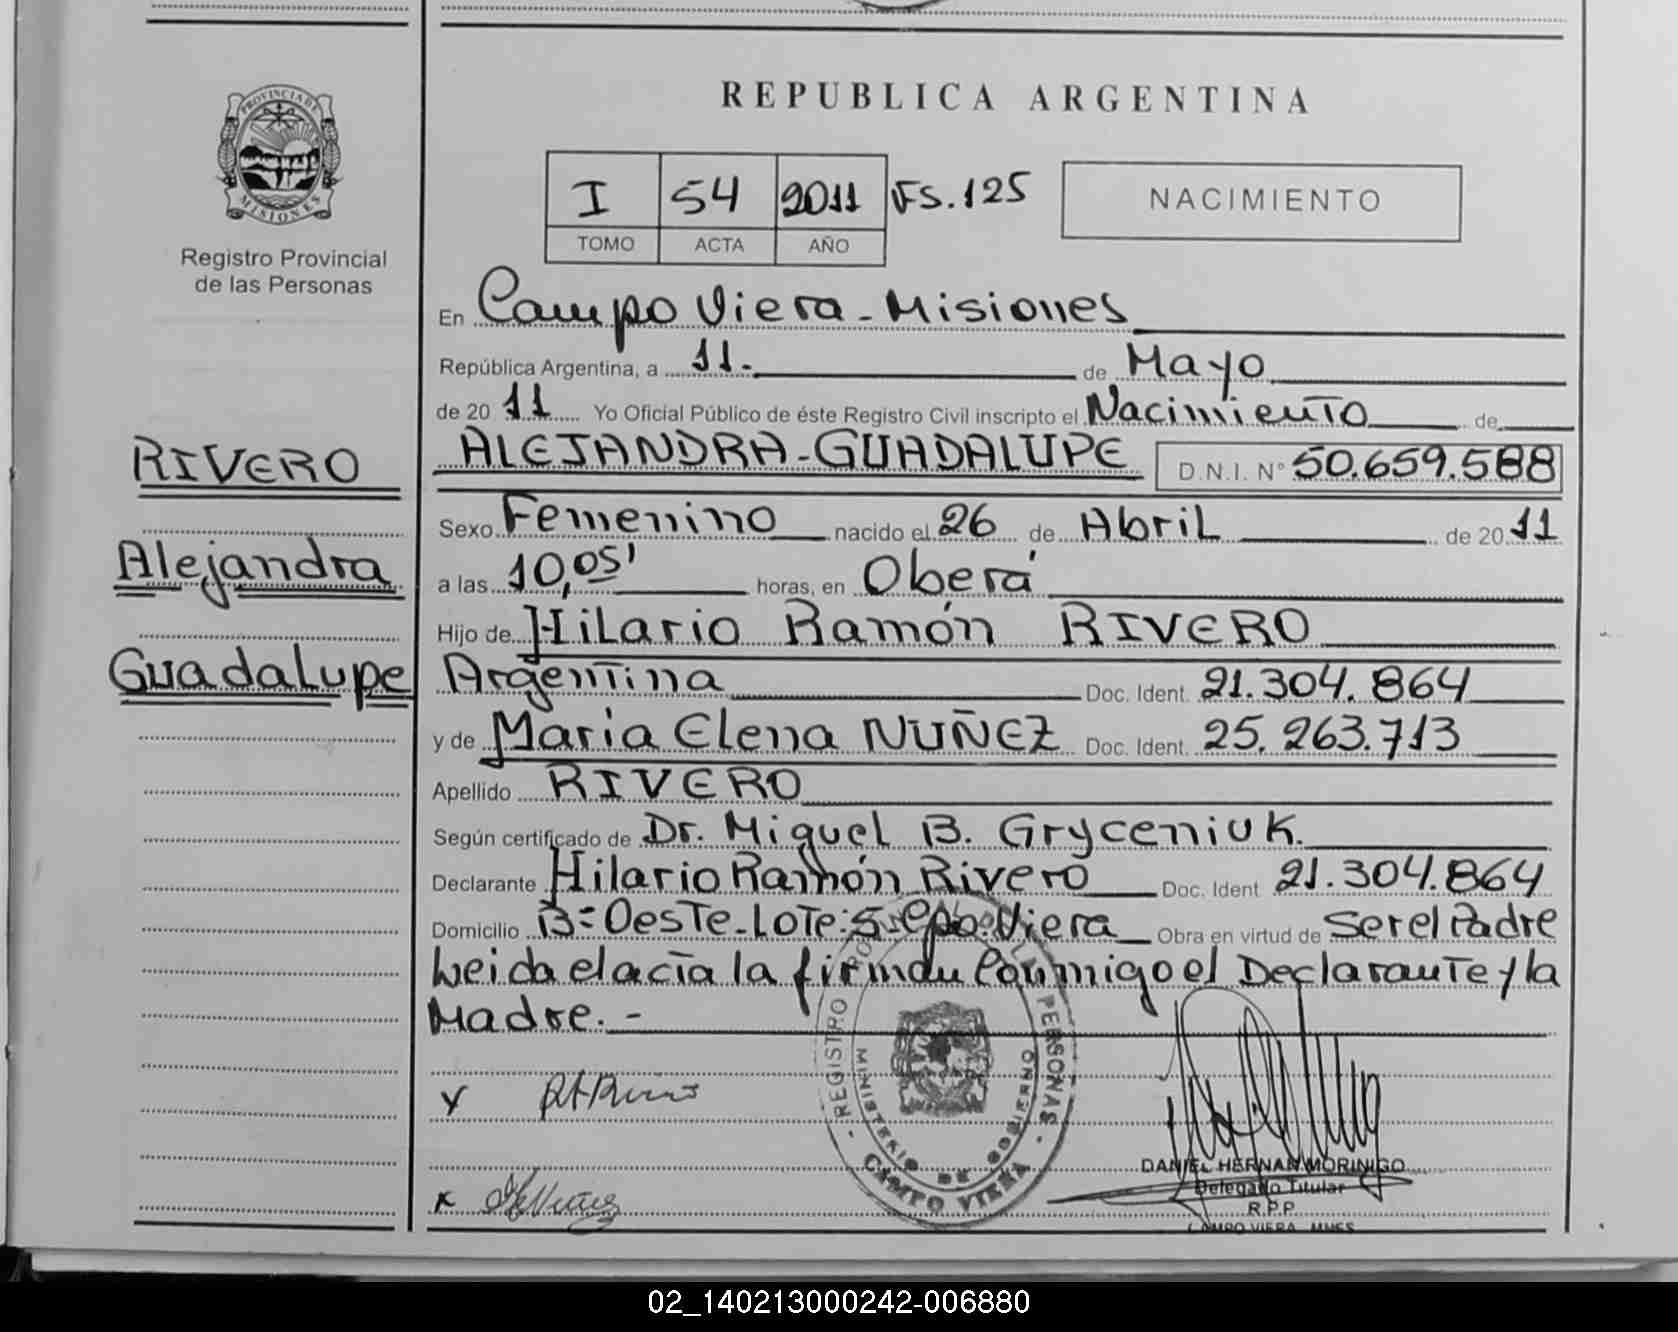 REPUBLICA ARGENTINA
PROVINCIA DE
MISIONES
Registro Provincial
de las Personas
I 54 2011 FS.125
TOMO ACTA AÑO
NACIMIENTO
En Campo Viera - Misiones
República Argentina, a 11.- de Mayo
de 20 11 Yo Oficial Público de éste Registro Civil inscripto el Nacimiento de
RIVERO
Alejandra
Guadalupe
ALEJANDRA-GUADALUPE D.N.I. Nº 50.659.588
Sexo Femenino nacido el 26 de Abril de 20 11
a las 10,05' horas, en Oberá
Hijo de Hilario Ramón RIVERO
Argentina Doc. Ident. 21.304.864
y de María Elena NUÑEZ Doc. Ident. 25.263.713
Apellido RIVERO
Según certificado de Dr. Miguel B. Gryceniuk.
Declarante Hilario Ramón Rivero Doc. Ident 21.304.864
Domicilio B=Oeste-Lote:5-Cpo.Viera Obra en virtud de ser el Padre
Leida el acta la firman Conmigo el Declarante y la
Madre.-
REGISTRO PERSONAS
MINISTERIO DE GOBIERNO
CAMPO VIERA
DANIEL HERNAN MORINIGO
Delegado Titular
R.P.P.
CAMPO VIERA MNES
02_140213000242-006880